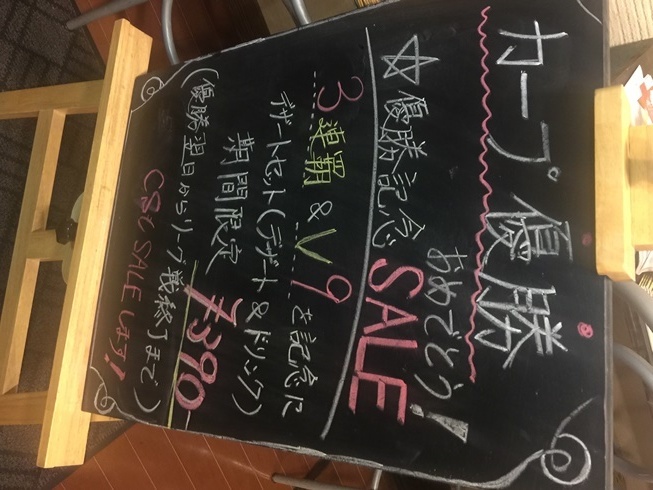 カープ優勝
おめでとう!
☆優勝記念SALE
3連覇&V9を記念に
デザートセット(デザート&ドリンク)
期間限定 ¥390
(優勝翌日からリーグ戦終了まで)
SALEします!